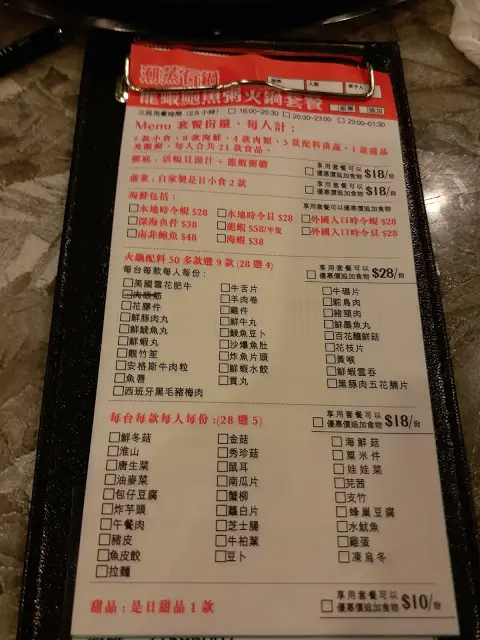 潮蒸石鍋
龍蝦鮑魚粥火鍋套餐
三級用餐時間 (2.5小時) □ 18:00-20:30 □ 20:30-23:00 □ 23:00-01:30
Menu 套餐份量，每人計：
2款小食，8款海鮮，4款肉類，5款配料蔬菜，1款甜品
及龍粥，每人合共21款食品。
鍋底：活蜆貝湯汁 + 龍蝦粥膽
享用套餐可以 優惠價追加食物 $18/份
前菜：自家製是日小食2款
享用套餐可以 優惠價追加食物 $18/份
海鮮包括：
享用套餐可以優惠價追加食物
□本地時令蜆 $28 □本地時令貝 $28 □外國入口時令蜆 $28
□深海魚件 $38 □龍蝦 $58/半隻 □外國入口時令貝 $28
□南非鮑魚 $48 □海蝦 $38
火鍋配料 50 多款選 9 款 (28 選 4)
每台每款每人每份：
享用套餐可以 優惠價追加食物 $28/份
□美國雪花肥牛 □牛舌片 □牛礤片
□羊肉卷 □鴕鳥肉
□花膠件 □雞件 □豬頸肉
□鮮豚肉丸 □鮮牛丸 □鮮墨魚丸
□鮮鯪魚丸 □鯪魚豆卜 □百花釀鮮菇
□鮮蝦丸 □沙爆魚肚 □花枝片
□靚竹笙 □炸魚片頭 □黃喉
□安格斯牛肉粒 □鮮蝦水餃 □鮮蝦雲吞
□魚唇 □貢丸 □黑豚肉五花腩片
□西班牙黑毛豬梅肉
每台每款每人每份:(28 選 5)
享用套餐可以 優惠價追加食物 $18/份
□鮮冬菇 □金菇 □海鮮菇
□淮山 □秀珍菇 □粟米件
□唐生菜 □鼠耳 □娃娃菜
□油麥菜 □南瓜片 □芫茜
□包仔豆腐 □蟹柳 □支竹
□炸芋頭 □蘿白片 □蜂巢豆腐
□午餐肉 □芝士腸 □水魷魚
□豬皮 □牛柏葉 □雞蛋
□魚皮餃 □豆卜 □凍烏冬
□拉麵
甜品：是日甜品 1 款
享用套餐可以 優惠價追加食物 $10/份